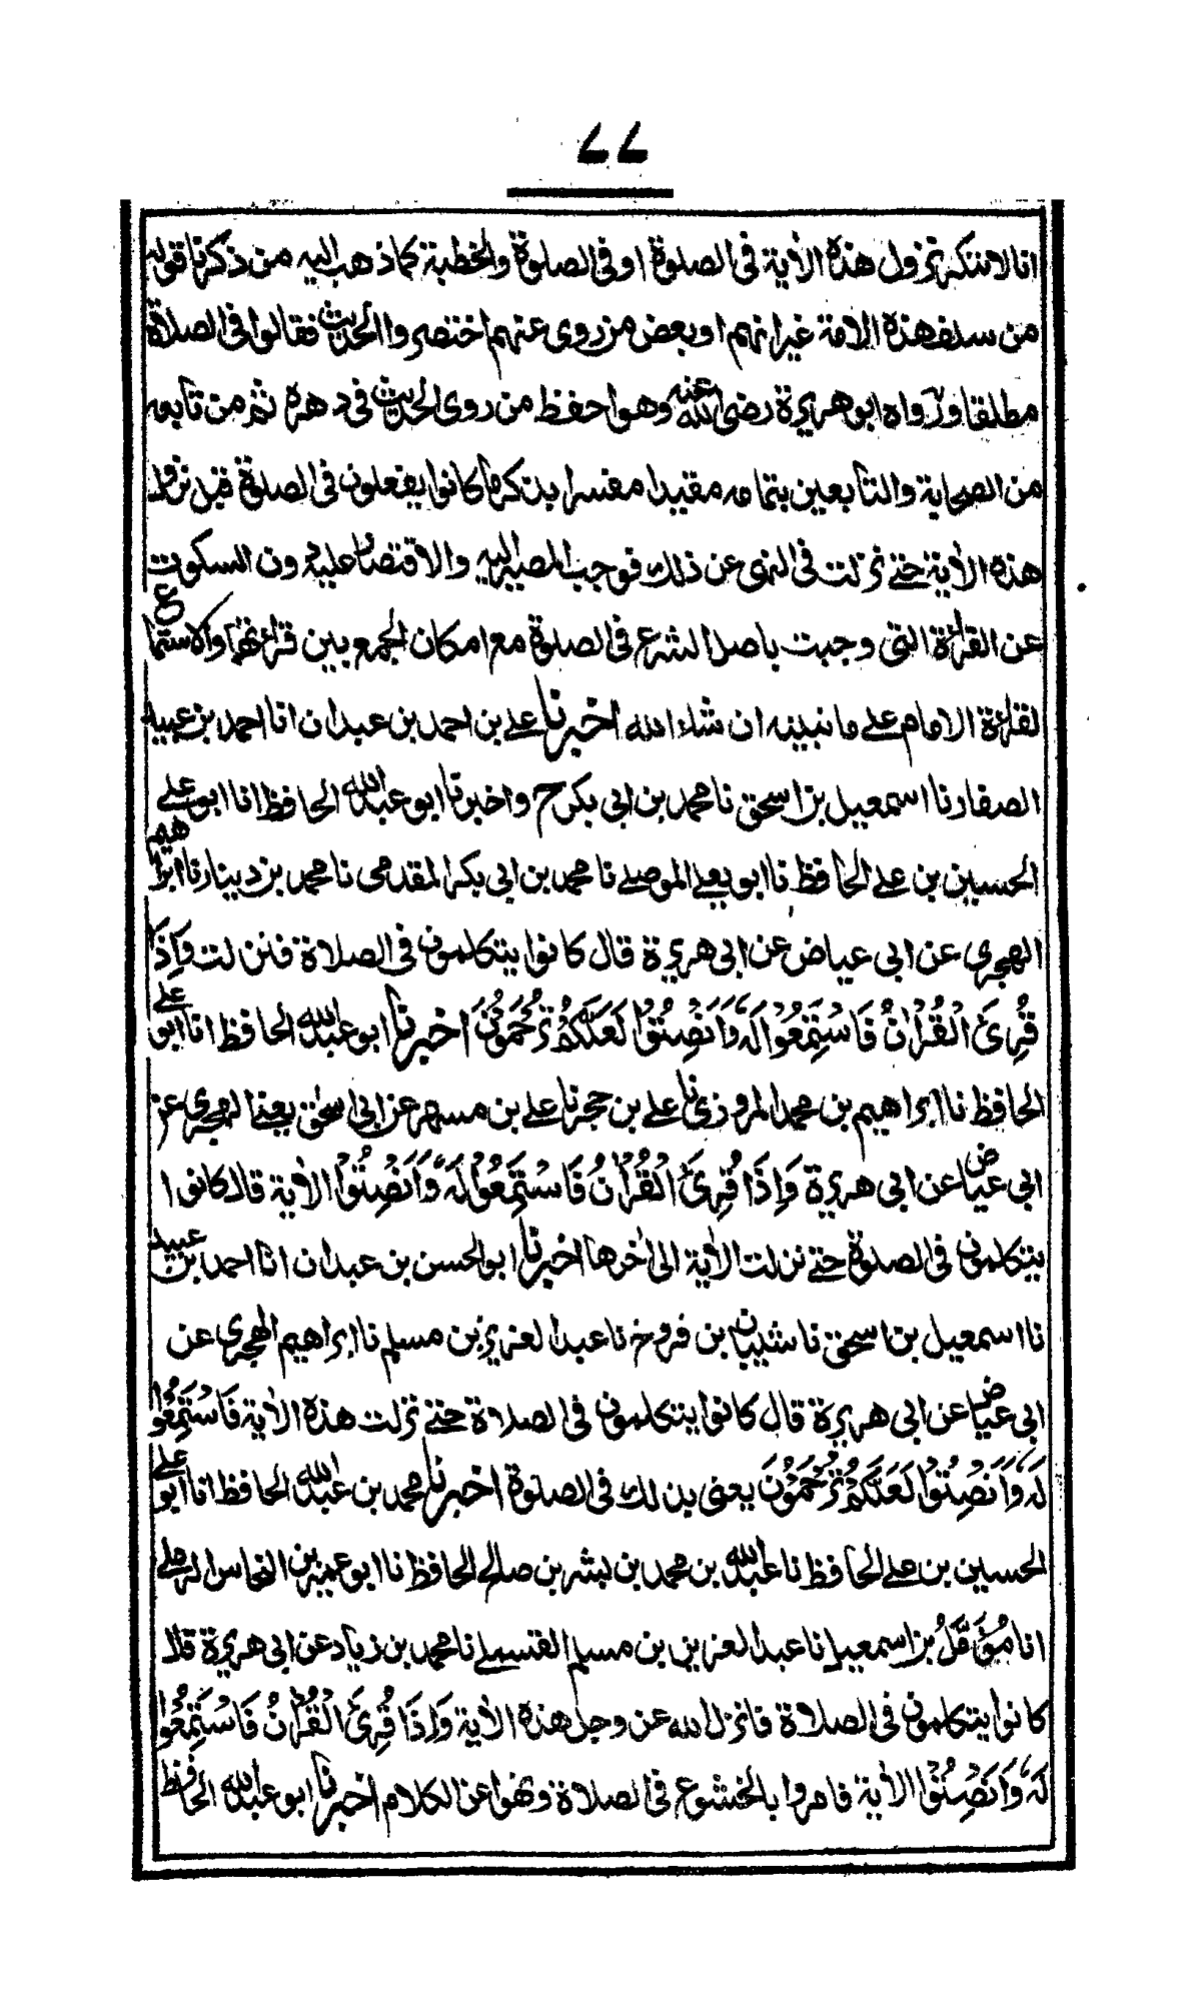 ٧٧
انا لا ننكر نزول هذه الاٰية فى الصلوة او فى الصلوة والخطبة كما ذهب اليه من ذكرنا قوله
من سلف هذه الامة غير انهم او بعض من روى عنهم اختصروا الحديث فقالوا فى الصلاة
مطلقا ورواه ابو هريرة رضى الله عنه وهو احفظ من روى الحديث فى دهره ثم من تابعه
من الصحابة والتابعين بتمامه مقيدا مفسرا بذكر ما كانوا يفعلون فى الصلوة قبل نزول
هذه الاٰية حتے نزلت فى النهى عن ذلك فوجب المصير اليه والاقتصار عليه دون السكوت
عن القراءة التى وجبت باصل الشرع فى الصلوة مع امكان الجمع بين قراءتها والاستماع
لقراءة الامام علے ما نبينه ان شاء الله اخبرنا علے بن احمد بن عبدان انا احمد بن عبيد
الصفار نا اسمعيل بن اسحق نا محمد بن ابى بكر ح واخبرنا ابو عبد الله الحافظ انا ابو علے
الحسين بن علے الحافظ نا ابو يعلے الموصلے نا محمد بن ابى بكر المقدمى نا محمد بن دينار نا ابراهيم
الهجرى عن ابى عياض عن ابى هريرة قال كانوا يتكلمون فى الصلاة فنزلت وَاِذَا
قُرِئَ الْقُرْاٰنُ فَاسْتَمِعُوْا لَهٗ وَاَنْصِتُوْا لَعَلَّكُمْ تُرْحَمُوْنَ اخبرنا ابو عبد الله الحافظ انا ابو علے
الحافظ نا ابراهيم بن محمد المروزى نا علے بن حجر نا علے بن مسهر عن ابى اسحٰق يعنے الهجرى عن
ابى عياض عن ابى هريرة وَاِذَا قُرِئَ الْقُرْاٰنُ فَاسْتَمِعُوْا لَهٗ وَاَنْصِتُوْا الاٰية قال كانوا
يتكلمون فى الصلوة حتے نزلت الاٰية الى اٰخرها اخبرنا ابو الحسن بن عبدان انا احمد بن عبيد
نا اسمعيل بن اسحق نا شيبان بن فروخ نا عبد العزيز بن مسلم نا ابراهيم الهجرى عن
ابى عياض عن ابى هريرة قال كانوا يتكلمون فى الصلاة حتے نزلت هذه الاٰية فَاسْتَمِعُوْا
لَهٗ وَاَنْصِتُوْا لَعَلَّكُمْ تُرْحَمُوْنَ يعنى بذلك فى الصلوة اخبرنا محمد بن عبد الله الحافظ انا ابو علے
الحسين بن علے الحافظ نا عبد الله بن محمد بن بشر بن صالح الحافظ نا ابو عمير بن النحاس الرملے
انا مُؤَمَّلُ بن اسمعيل نا عبد العزيز بن مسلم القسملے نا محمد بن زياد عن ابى هريرة قال
كانوا يتكلمون فى الصلاة فانزل الله عز وجل هذه الاٰية وَاِذَا قُرِئَ الْقُرْاٰنُ فَاسْتَمِعُوْا
لَهٗ وَاَنْصِتُوْا الاٰية فامروا بالخشوع فى الصلاة ونهوا عن الكلام اخبرنا ابو عبد الله الحافظ